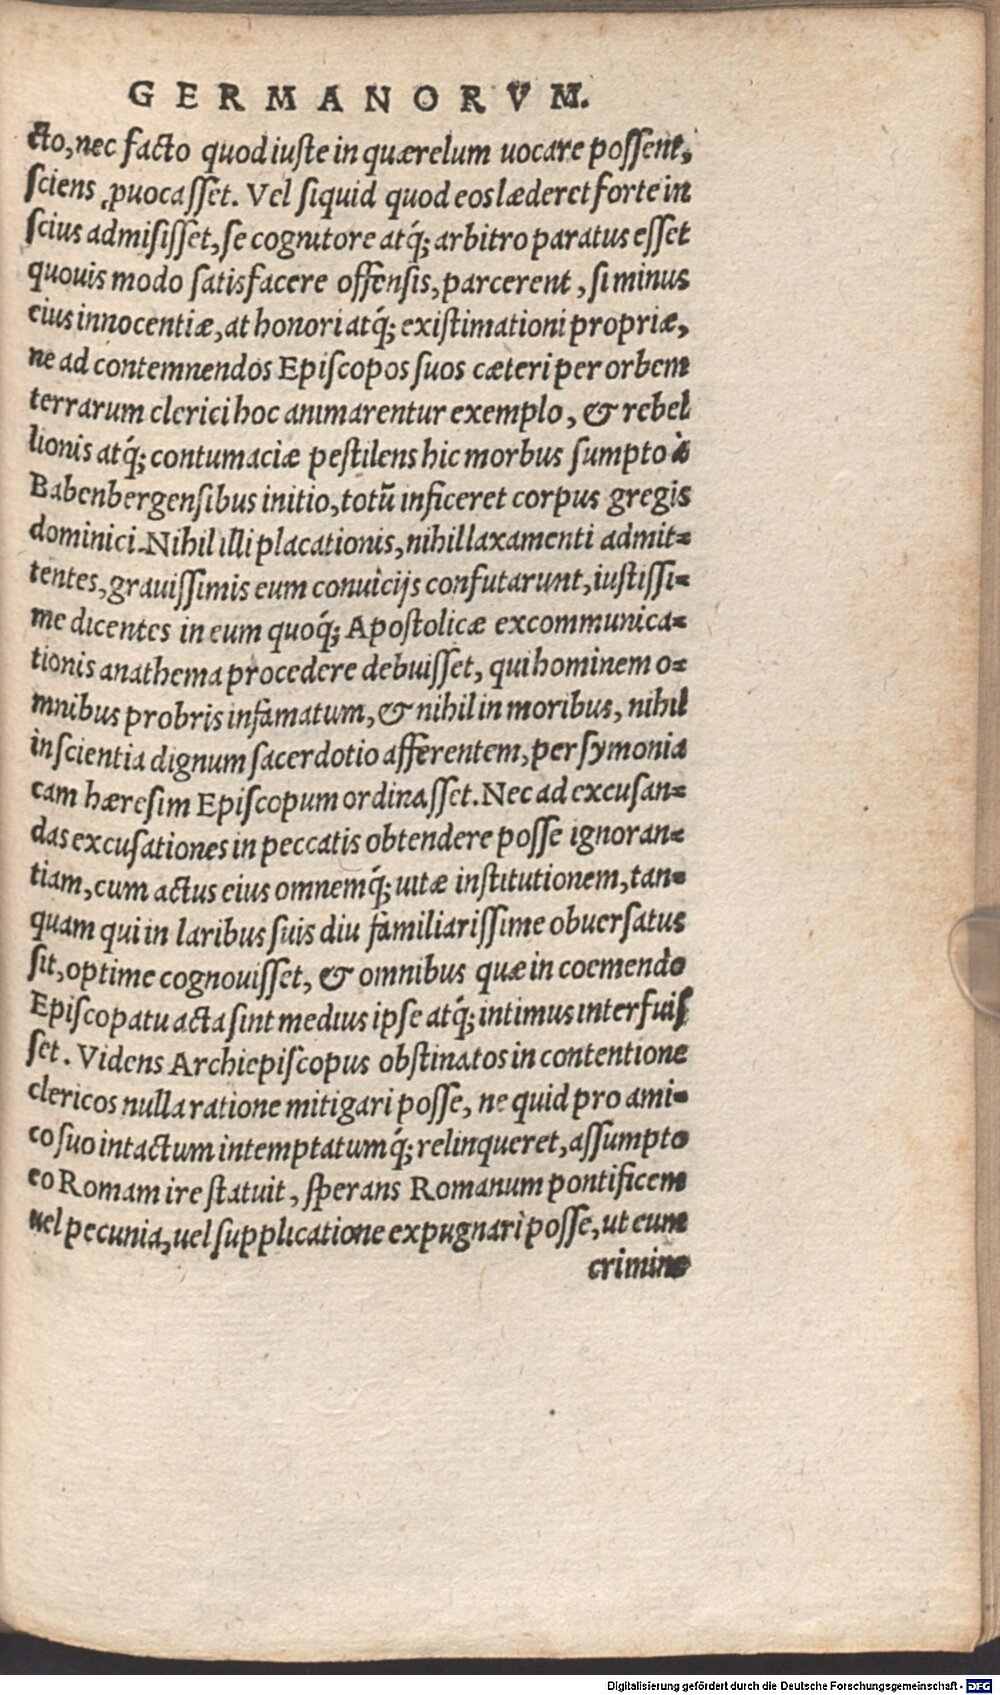 GERMANORVM.
cto, nec facto quod iuste in quærelum uocare possent,
sciens ꝓuocasset. Vel siquid quod eos læderet forte in
scius admisisset, se cognitore atq́; arbitro paratus esset
quouis modo satisfacere offensis, parcerent, si minus
eius innocentiæ, at honori atq́; existimationi propriæ,
ne ad contemnendos Episcopos suos cæteri per orbem
terrarum clerici hoc animarentur exemplo, & rebel
lionis atq́; contumaciæ pestilens hic morbus sumpto à
Babenbergensibus initio, totū inficeret corpus gregis
dominici. Nihil illi placationis, nihil laxamenti admit-
tentes, grauissimis eum conuicijs confutarunt, iustissi-
me dicentes in eum quoq́; Apostolicæ excommunica-
tionis anathema procedere debuisset, qui hominem o-
mnibus probris infamatum, & nihil in moribus, nihil
in scientia dignum sacerdotio afferentem, per symonia
cam hæresim Episcopum ordinasset. Nec ad excusan-
das excusationes in peccatis obtendere posse ignoran-
tiam, cum actus eius omnemq́; uitæ institutionem, tan-
quam qui in laribus suis diu familiarissime obuersatus
sit, optime cognouisset, & omnibus quæ in coemendo
Episcopatu acta sint medius ipse atq́; intimus interfuis
set. Videns Archiepiscopus obstinatos in contentione
clericos nulla ratione mitigari posse, ne quid pro ami-
co suo intactum intemptatumq́; relinqueret, assumpto
eo Romam ire statuit, sperans Romanum pontificem
uel pecunia, uel supplicatione expugnari posse, ut eum
crimine
Digitalisierung gefördert durch die Deutsche Forschungsgemeinschaft - DFG